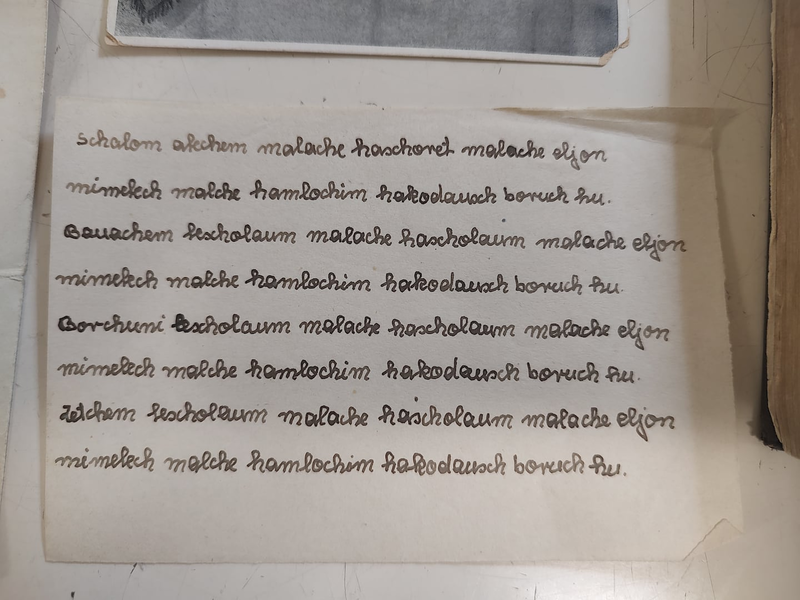 Schalom alechem malache haschoret malache eljon
mimelech malche hamlochim hakodausch boruch hu.
Bauachem lescholaum malache hascholaum malache eljon
mimelech malche hamlochim hakodausch boruch hu.
Borchuni lescholaum malache hascholaum malache eljon
mimelech malche hamlochim hakodausch boruch hu.
Zetchem lescholaum malache hascholaum malache eljon
mimelech malche hamlochim hakodausch boruch hu.